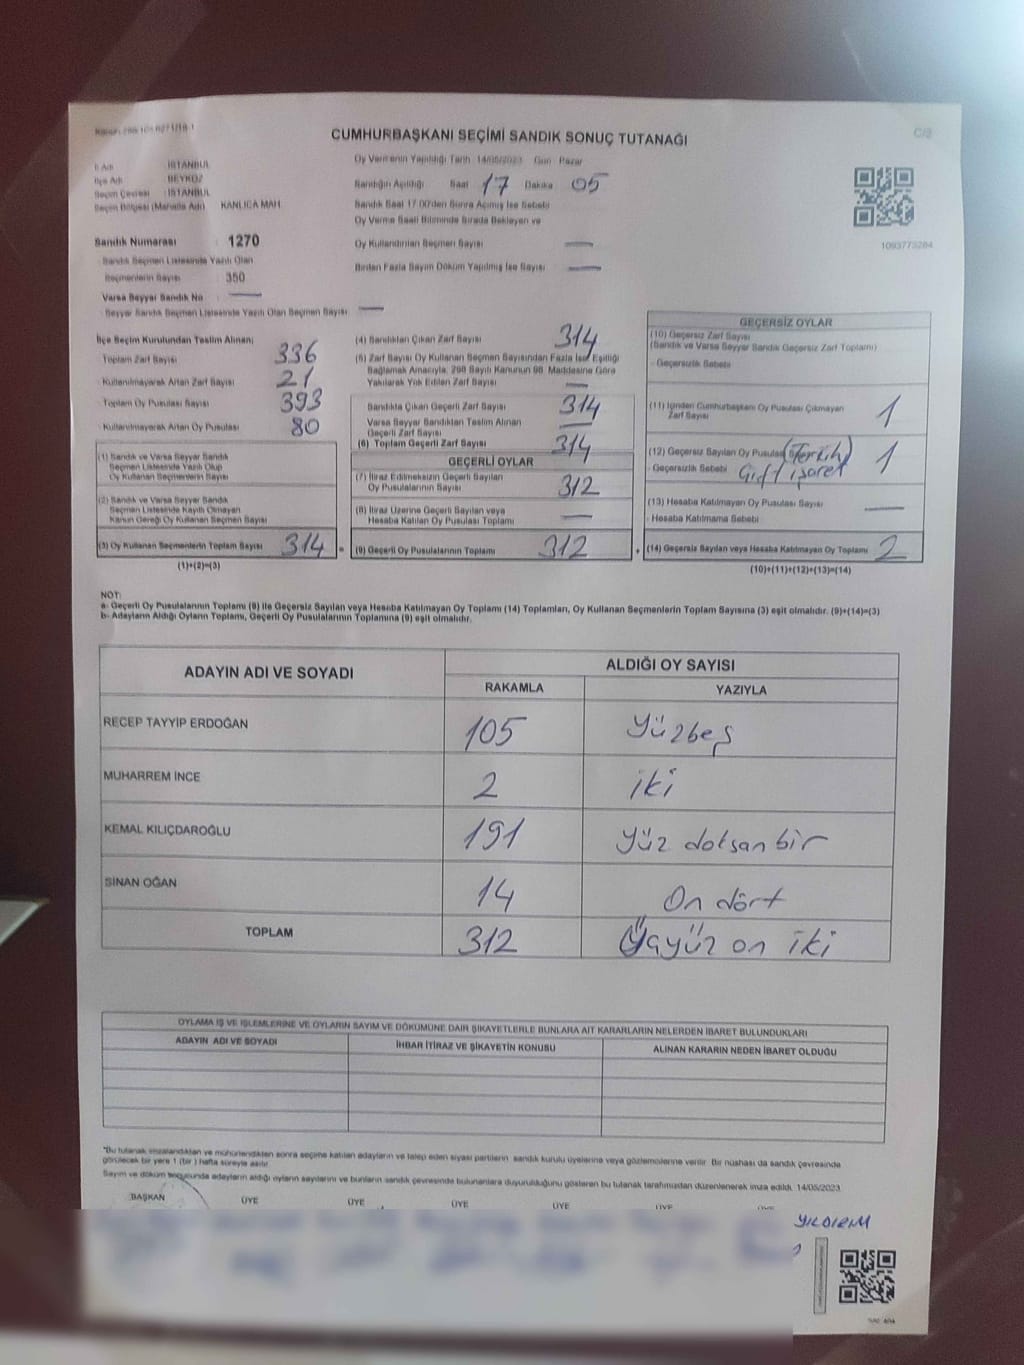 CUMHURBAŞKANI SEÇİMİ SANDIK SONUÇ TUTANAĞI
C/2
İl Adı : İSTANBUL
İlçe Adı : BEYKOZ
Seçim Çevresi : İSTANBUL
Seçim Bölgesi (Mahalle Adı) : KANLICA MAH.
Sandık Numarası : 1270
Sandık Seçmen Listesinde Yazılı Olan
Seçmenlerin Sayısı : 350
Varsa Seyyar Sandık No —
Seyyar Sandık Seçmen Listesinde Yazılı Olan Seçmen Sayısı —
Oy Vermenin Yapıldığı Tarih 14/05/2023 Gün Pazar
Sandığın Açıldığı Saat 17 Dakika 05
Sandık Saat 17:00'den Sonra Açılmış İse Sebebi
Oy Verme Saati Bitiminde Sırada Bekleyen ve
Oy Kullandırılan Seçmen Sayısı —
Birden Fazla Sayım Döküm Yapılmış İse Sayısı —
1093773284
İlçe Seçim Kurulundan Teslim Alınan;
Toplam Zarf Sayısı 336
Kullanılmayarak Artan Zarf Sayısı 21
Toplam Oy Pusulası Sayısı 393
Kullanılmayarak Artan Oy Pusulası 80
(1) Sandık ve Varsa Seyyar Sandık
Seçmen Listesinde Yazılı Olup
Oy Kullanan Seçmenlerin Sayısı
(2) Sandık ve Varsa Seyyar Sandık
Seçmen Listesinde Kayıtlı Olmayan
Kanun Gereği Oy Kullanan Seçmen Sayısı
(3) Oy Kullanan Seçmenlerin Toplam Sayısı 314 =
(1)+(2)=(3)
(4) Sandıktan Çıkan Zarf Sayısı 314
(5) Zarf Sayısı Oy Kullanan Seçmen Sayısından Fazla İse, Eşitliği
Sağlamak Amacıyla, 298 Sayılı Kanunun 98. Maddesine Göre
Yakılarak Yok Edilen Zarf Sayısı —
Sandıkta Çıkan Geçerli Zarf Sayısı 314
Varsa Seyyar Sandıktan Teslim Alınan
Geçerli Zarf Sayısı —
(6) Toplam Geçerli Zarf Sayısı 314
GEÇERLİ OYLAR
(7) İtiraz Edilmeksizin Geçerli Sayılan
Oy Pusulalarının Sayısı 312
(8) İtiraz Üzerine Geçerli Sayılan veya
Hesaba Katılan Oy Pusulası Toplamı —
(9) Geçerli Oy Pusulalarının Toplamı 312 +
GEÇERSİZ OYLAR
(10) Geçersiz Zarf Sayısı
(Sandık ve Varsa Seyyar Sandık Geçersiz Zarf Toplamı)
- Geçersizlik Sebebi
(11) İçinden Cumhurbaşkanı Oy Pusulası Çıkmayan
Zarf Sayısı 1
(12) Geçersiz Sayılan Oy Pusulası 1
- Geçersizlik Sebebi Çift işaret
(13) Hesaba Katılmayan Oy Pusulası Sayısı —
- Hesaba Katılmama Sebebi
(14) Geçersiz Sayılan veya Hesaba Katılmayan Oy Toplamı 2
(10)+(11)+(12)+(13)=(14)
NOT:
a- Geçerli Oy Pusulalarının Toplamı (9) ile Geçersiz Sayılan veya Hesaba Katılmayan Oy Toplamı (14) Toplamları, Oy Kullanan Seçmenlerin Toplam Sayısına (3) eşit olmalıdır. (9)+(14)=(3)
b- Adayların Aldığı Oyların Toplamı, Geçerli Oy Pusulalarının Toplamına (9) eşit olmalıdır.
ADAYIN ADI VE SOYADI
ALDIĞI OY SAYISI
RAKAMLA YAZIYLA
RECEP TAYYİP ERDOĞAN 105 Yüzbeş
MUHARREM İNCE 2 iki
KEMAL KILIÇDAROĞLU 191 yüz doksan bir
SİNAN OĞAN 14 On dört
TOPLAM 312 Üçyüz on iki
OYLAMA İŞ VE İŞLEMLERİNE VE OYLARIN SAYIM VE DÖKÜMÜNE DAİR ŞİKAYETLERLE BUNLARA AİT KARARLARIN NELERDEN İBARET BULUNDUKLARI
ADAYIN ADI VE SOYADI İHBAR İTİRAZ VE ŞİKAYETİN KONUSU ALINAN KARARIN NEDEN İBARET OLDUĞU
*Bu tutanak imzalandıktan ve mühürlendikten sonra seçime katılan adayların ve talep eden siyasi partilerin sandık kurulu üyelerine veya gözlemcilerine verilir. Bir nüshası da sandık çevresinde
görülecek bir yere 1 (bir) hafta süreyle asılır.
Sayım ve döküm sonucunda adayların aldığı oyların sayılarını ve bunların sandık çevresinde bulunanlara duyurulduğunu gösteren bu tutanak tarafımızdan düzenlenerek imza edildi. 14/05/2023
BAŞKAN ÜYE ÜYE ÜYE ÜYE ÜYE
YILDIRIM